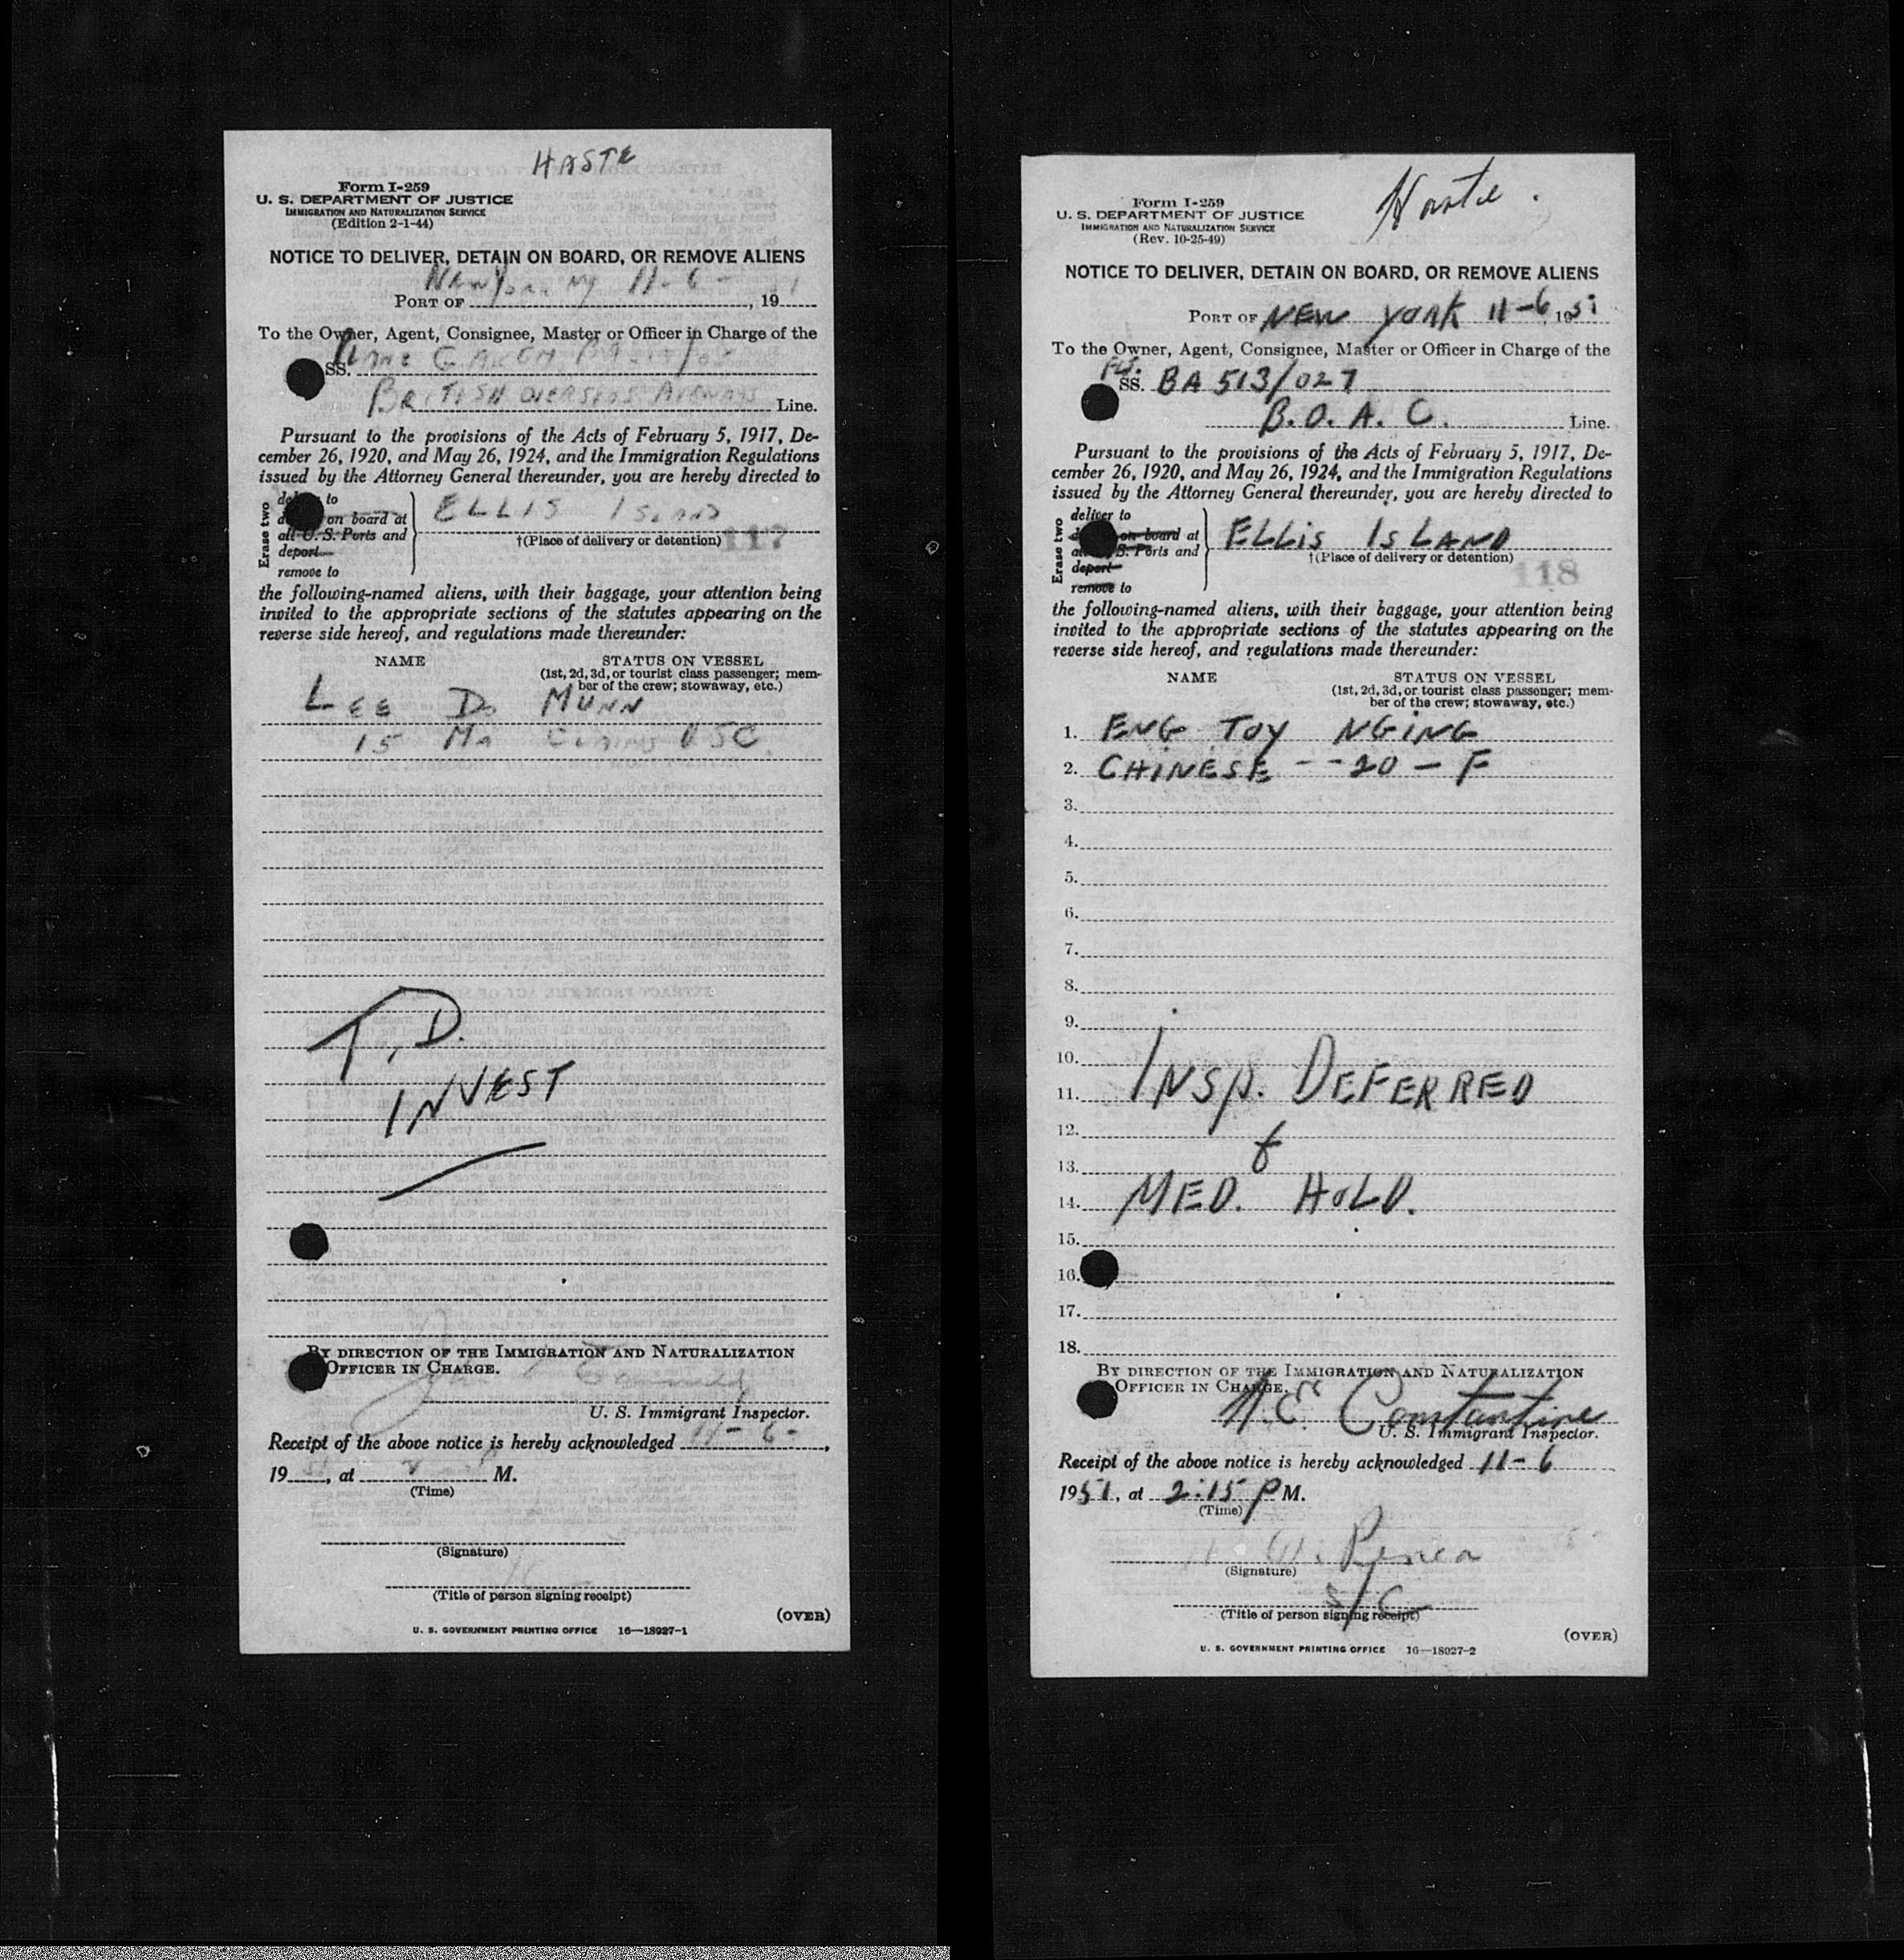 HASTE
Form I-259
U. S. DEPARTMENT OF JUSTICE
IMMIGRATION AND NATURALIZATION SERVICE
(Edition 2-1-44)
NOTICE TO DELIVER, DETAIN ON BOARD, OR REMOVE ALIENS
PORT OF New York NY 11-6-, 19 51
To the Owner, Agent, Consignee, Master or Officer in Charge of the
SS. Plane
BRITISH OVERSEAS AIRWAYS Line.
Pursuant to the provisions of the Acts of February 5, 1917, De-
cember 26, 1920, and May 26, 1924, and the Immigration Regulations
issued by the Attorney General thereunder, you are hereby directed to
Erase two
to
on board at
all U. S. Ports and
deport
remove to
ELLIS ISLAND
†(Place of delivery or detention) 117
the following-named aliens, with their baggage, your attention being
invited to the appropriate sections of the statutes appearing on the
reverse side hereof, and regulations made thereunder:
NAME STATUS ON VESSEL
(1st, 2d, 3d, or tourist class passenger; mem-
ber of the crew; stowaway, etc.)
LEE Do MUNN
15 Ma CLAIMS USC
T.D.
INVEST
BY DIRECTION OF THE IMMIGRATION AND NATURALIZATION
OFFICER IN CHARGE.
U. S. Immigrant Inspector.
Receipt of the above notice is hereby acknowledged 11-6-,
19 51, at M.
(Time)
(Signature)
(Title of person signing receipt)
(OVER)
U. S. GOVERNMENT PRINTING OFFICE 16—18027-1
Haste.
Form I-259
U. S. DEPARTMENT OF JUSTICE
IMMIGRATION AND NATURALIZATION SERVICE
(Rev. 10-25-49)
NOTICE TO DELIVER, DETAIN ON BOARD, OR REMOVE ALIENS
PORT OF NEW YORK 11-6, 1951
To the Owner, Agent, Consignee, Master or Officer in Charge of the
SS. BA 513/027
B.O.A.C. Line.
Pursuant to the provisions of the Acts of February 5, 1917, De-
cember 26, 1920, and May 26, 1924, and the Immigration Regulations
issued by the Attorney General thereunder, you are hereby directed to
Erase two
deliver to
on board at
S. Ports and
deport
remove to
ELLIS ISLAND
†(Place of delivery or detention)
118
the following-named aliens, with their baggage, your attention being
invited to the appropriate sections of the statutes appearing on the
reverse side hereof, and regulations made thereunder:
NAME STATUS ON VESSEL
(1st, 2d, 3d, or tourist class passenger; mem-
ber of the crew; stowaway, etc.)
1. ENG TOY NGING
2. CHINESE -- 20 - F
3.
4.
5.
6.
7.
8.
9.
10.
11. INSP. DEFERRED
12.
13. &
14. MED. HOLD.
15.
16.
17.
18.
BY DIRECTION OF THE IMMIGRATION AND NATURALIZATION
OFFICER IN CHARGE.
Constantine
U. S. Immigrant Inspector.
Receipt of the above notice is hereby acknowledged 11-6
1951, at 2:15 P M.
(Time)
(Signature)
S/C
(Title of person signing receipt)
(OVER)
U. S. GOVERNMENT PRINTING OFFICE 16—18027-2